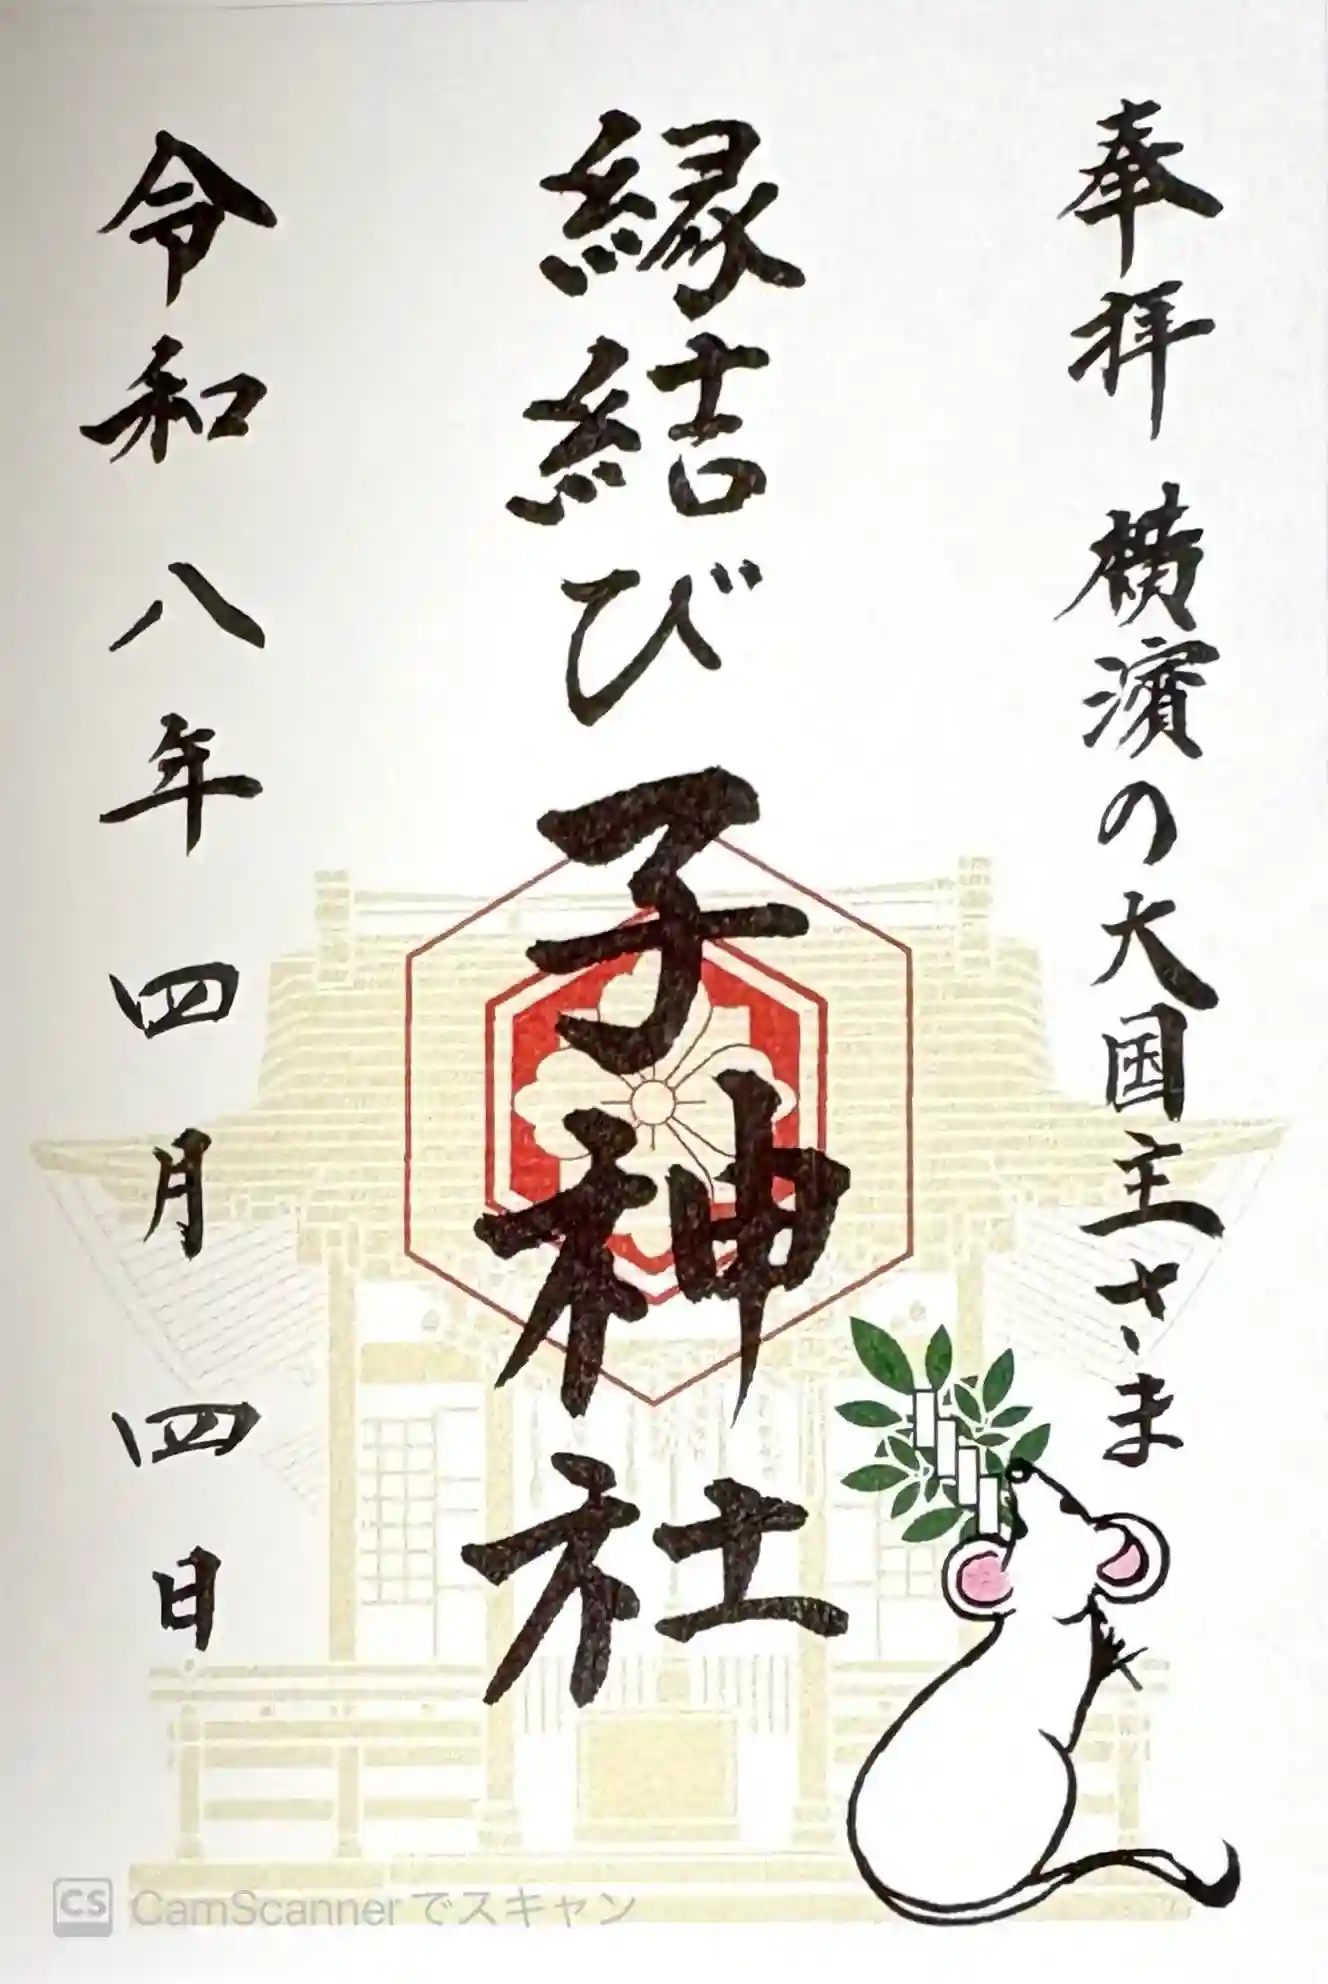 奉拝 横濱の大国主さま
縁結び 子神社
令和八年四月四日
CS CamScannerでスキャン